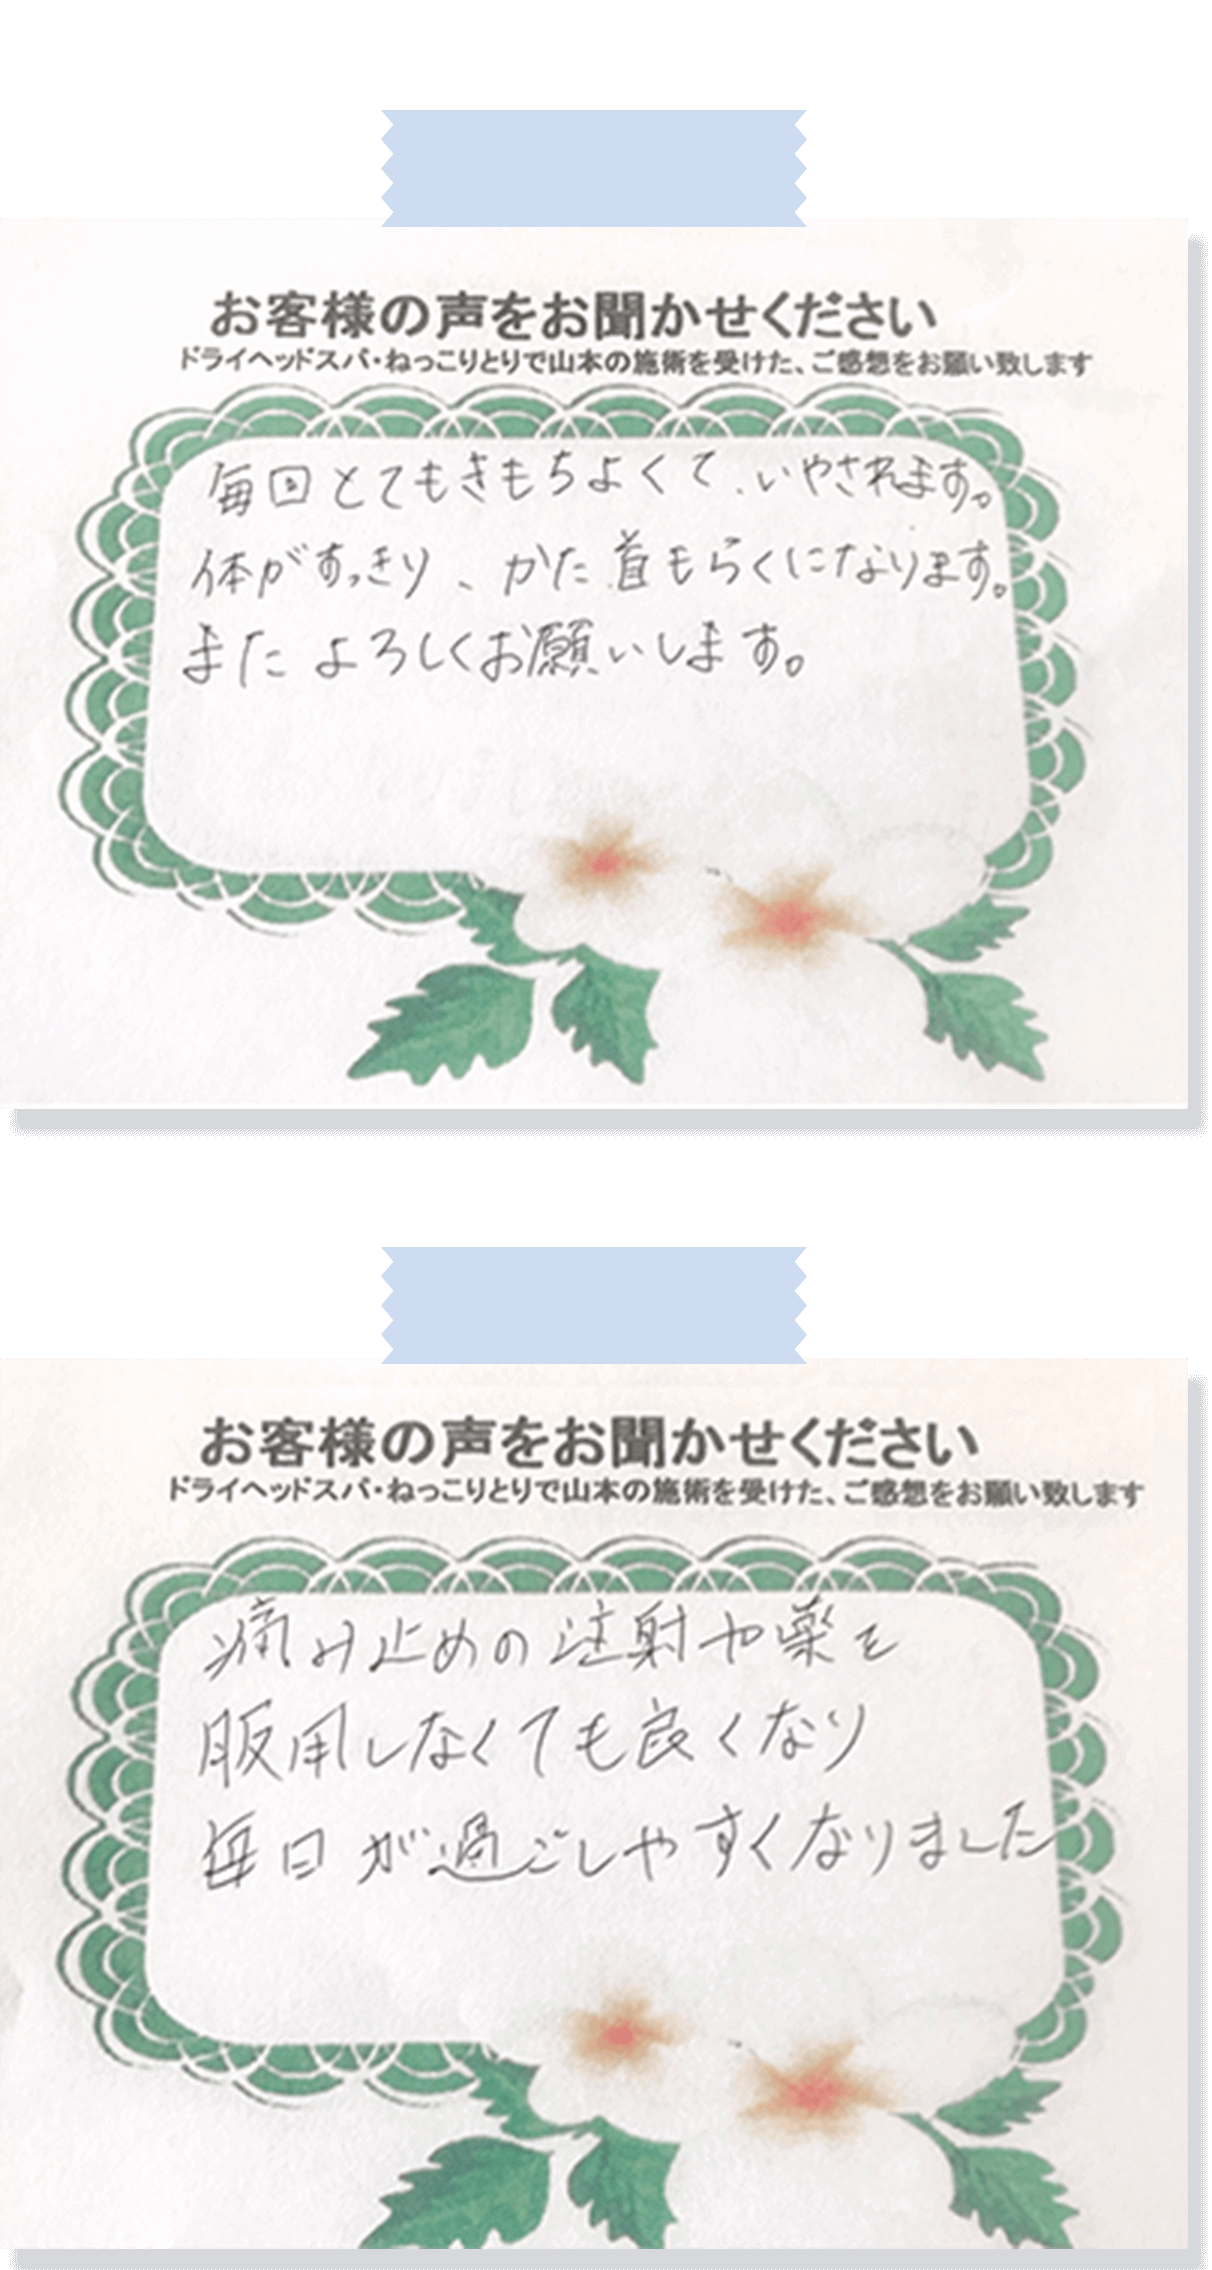 お客様の声をお聞かせください
ドライヘッドスパ・ねっこりとりで山本の施術を受けた、ご感想をお願い致します
毎回とてもきもちよくて、いやされます。
体がすっきり、かた首もらくになります。
またよろしくお願いします。
お客様の声をお聞かせください
ドライヘッドスパ・ねっこりとりで山本の施術を受けた、ご感想をお願い致します
痛み止めの注射や薬を
服用しなくても良くなり
毎日が過ごしやすくなりました